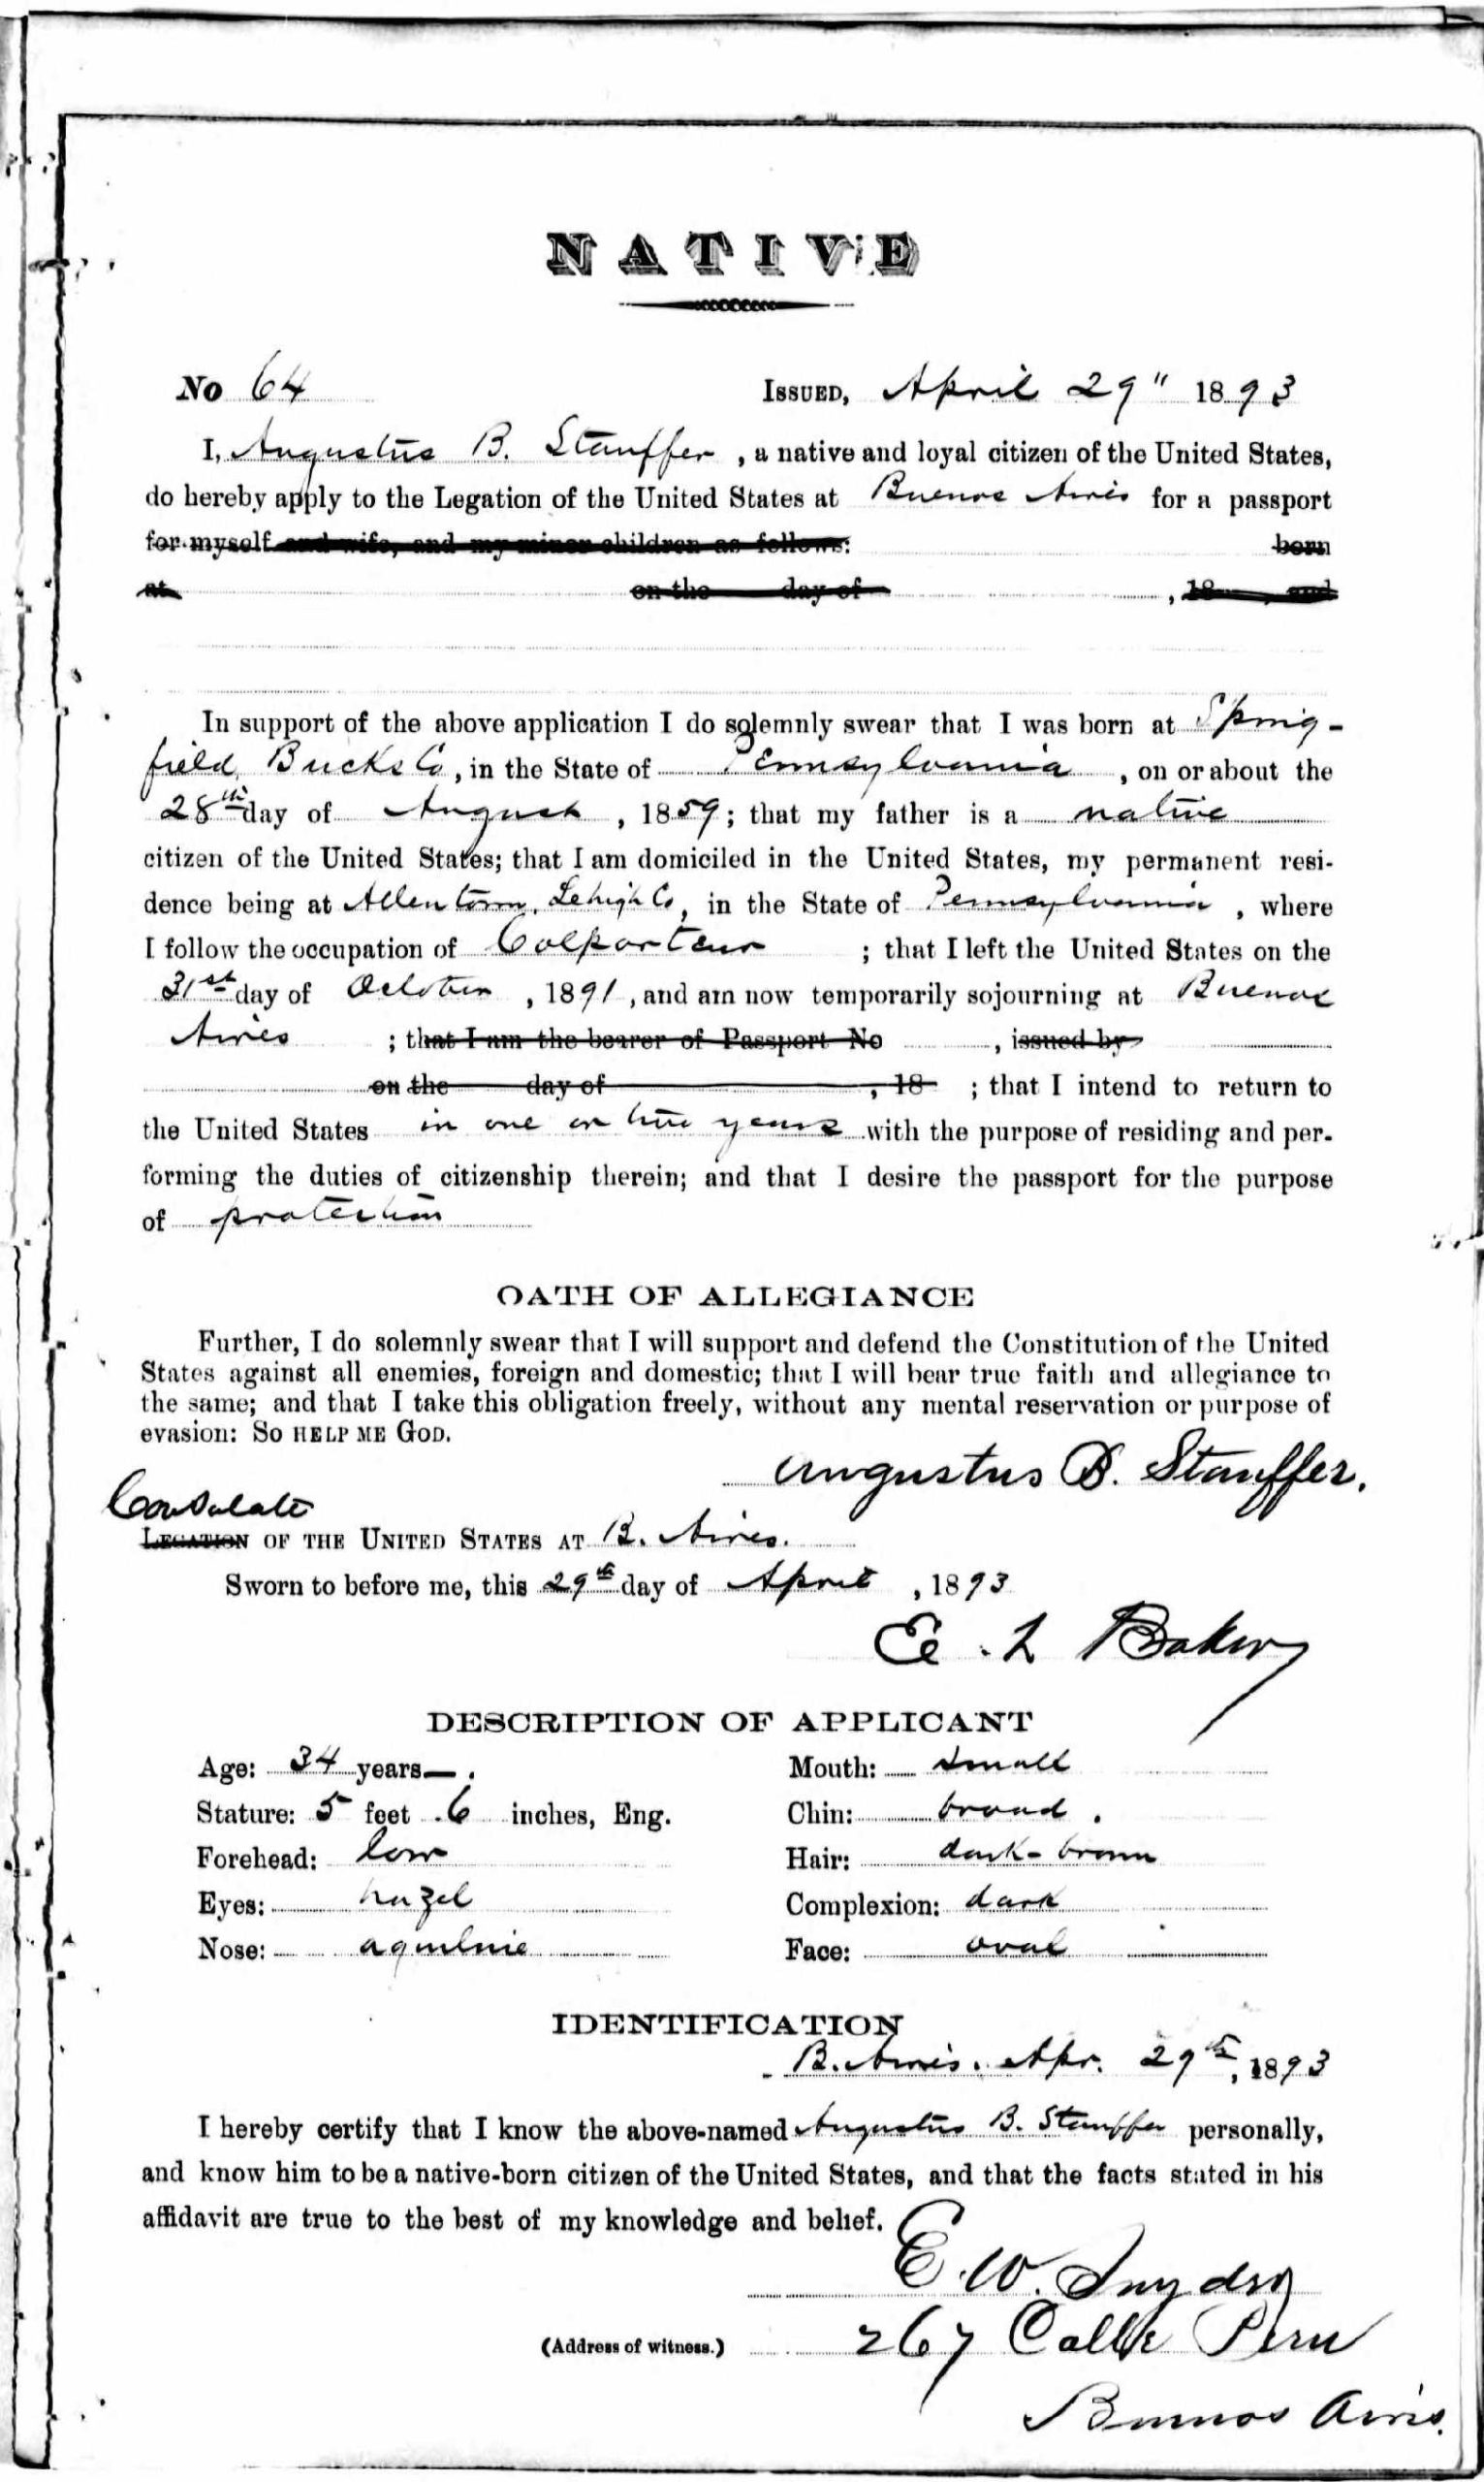 NATIVE
No 64 ISSUED, April 29" 1893
I, Augustus B. Stauffer, a native and loyal citizen of the United States,
do hereby apply to the Legation of the United States at Buenos Aires for a passport
for myself and wife, and my minor children as follows: born
at on the day of , 18 , and
In support of the above application I do solemnly swear that I was born at Spring-
field, Bucks Co, in the State of Pennsylvania, on or about the
28th day of August, 1859; that my father is a native
citizen of the United States; that I am domiciled in the United States, my permanent resi-
dence being at Allentown, Lehigh Co, in the State of Pennsylvania, where
I follow the occupation of Colporteur; that I left the United States on the
31st day of October, 1891, and am now temporarily sojourning at Buenos
Aires; that I am the bearer of Passport No , issued by
on the day of , 18 ; that I intend to return to
the United States in one or two years with the purpose of residing and per-
forming the duties of citizenship therein; and that I desire the passport for the purpose
of protection
OATH OF ALLEGIANCE
Further, I do solemnly swear that I will support and defend the Constitution of the United
States against all enemies, foreign and domestic; that I will bear true faith and allegiance to
the same; and that I take this obligation freely, without any mental reservation or purpose of
evasion: SO HELP ME GOD.
Augustus B. Stauffer.
Consulate
LEGATION OF THE UNITED STATES AT B. Aires.
Sworn to before me, this 29th day of April, 1893
E. L Baker
DESCRIPTION OF APPLICANT
Age: 34 years—. Mouth: small
Stature: 5 feet 6 inches, Eng. Chin: broad.
Forehead: low Hair: dark-brown
Eyes: hazel Complexion: dark
Nose: aquiline Face: oval
IDENTIFICATION
B. Aires. Apr. 29th, 1893
I hereby certify that I know the above-named Augustus B. Stauffer personally,
and know him to be a native-born citizen of the United States, and that the facts stated in his
affidavit are true to the best of my knowledge and belief.
E. W. Snyder
(Address of witness.) 267 Calle Peru
Buenos Aires.